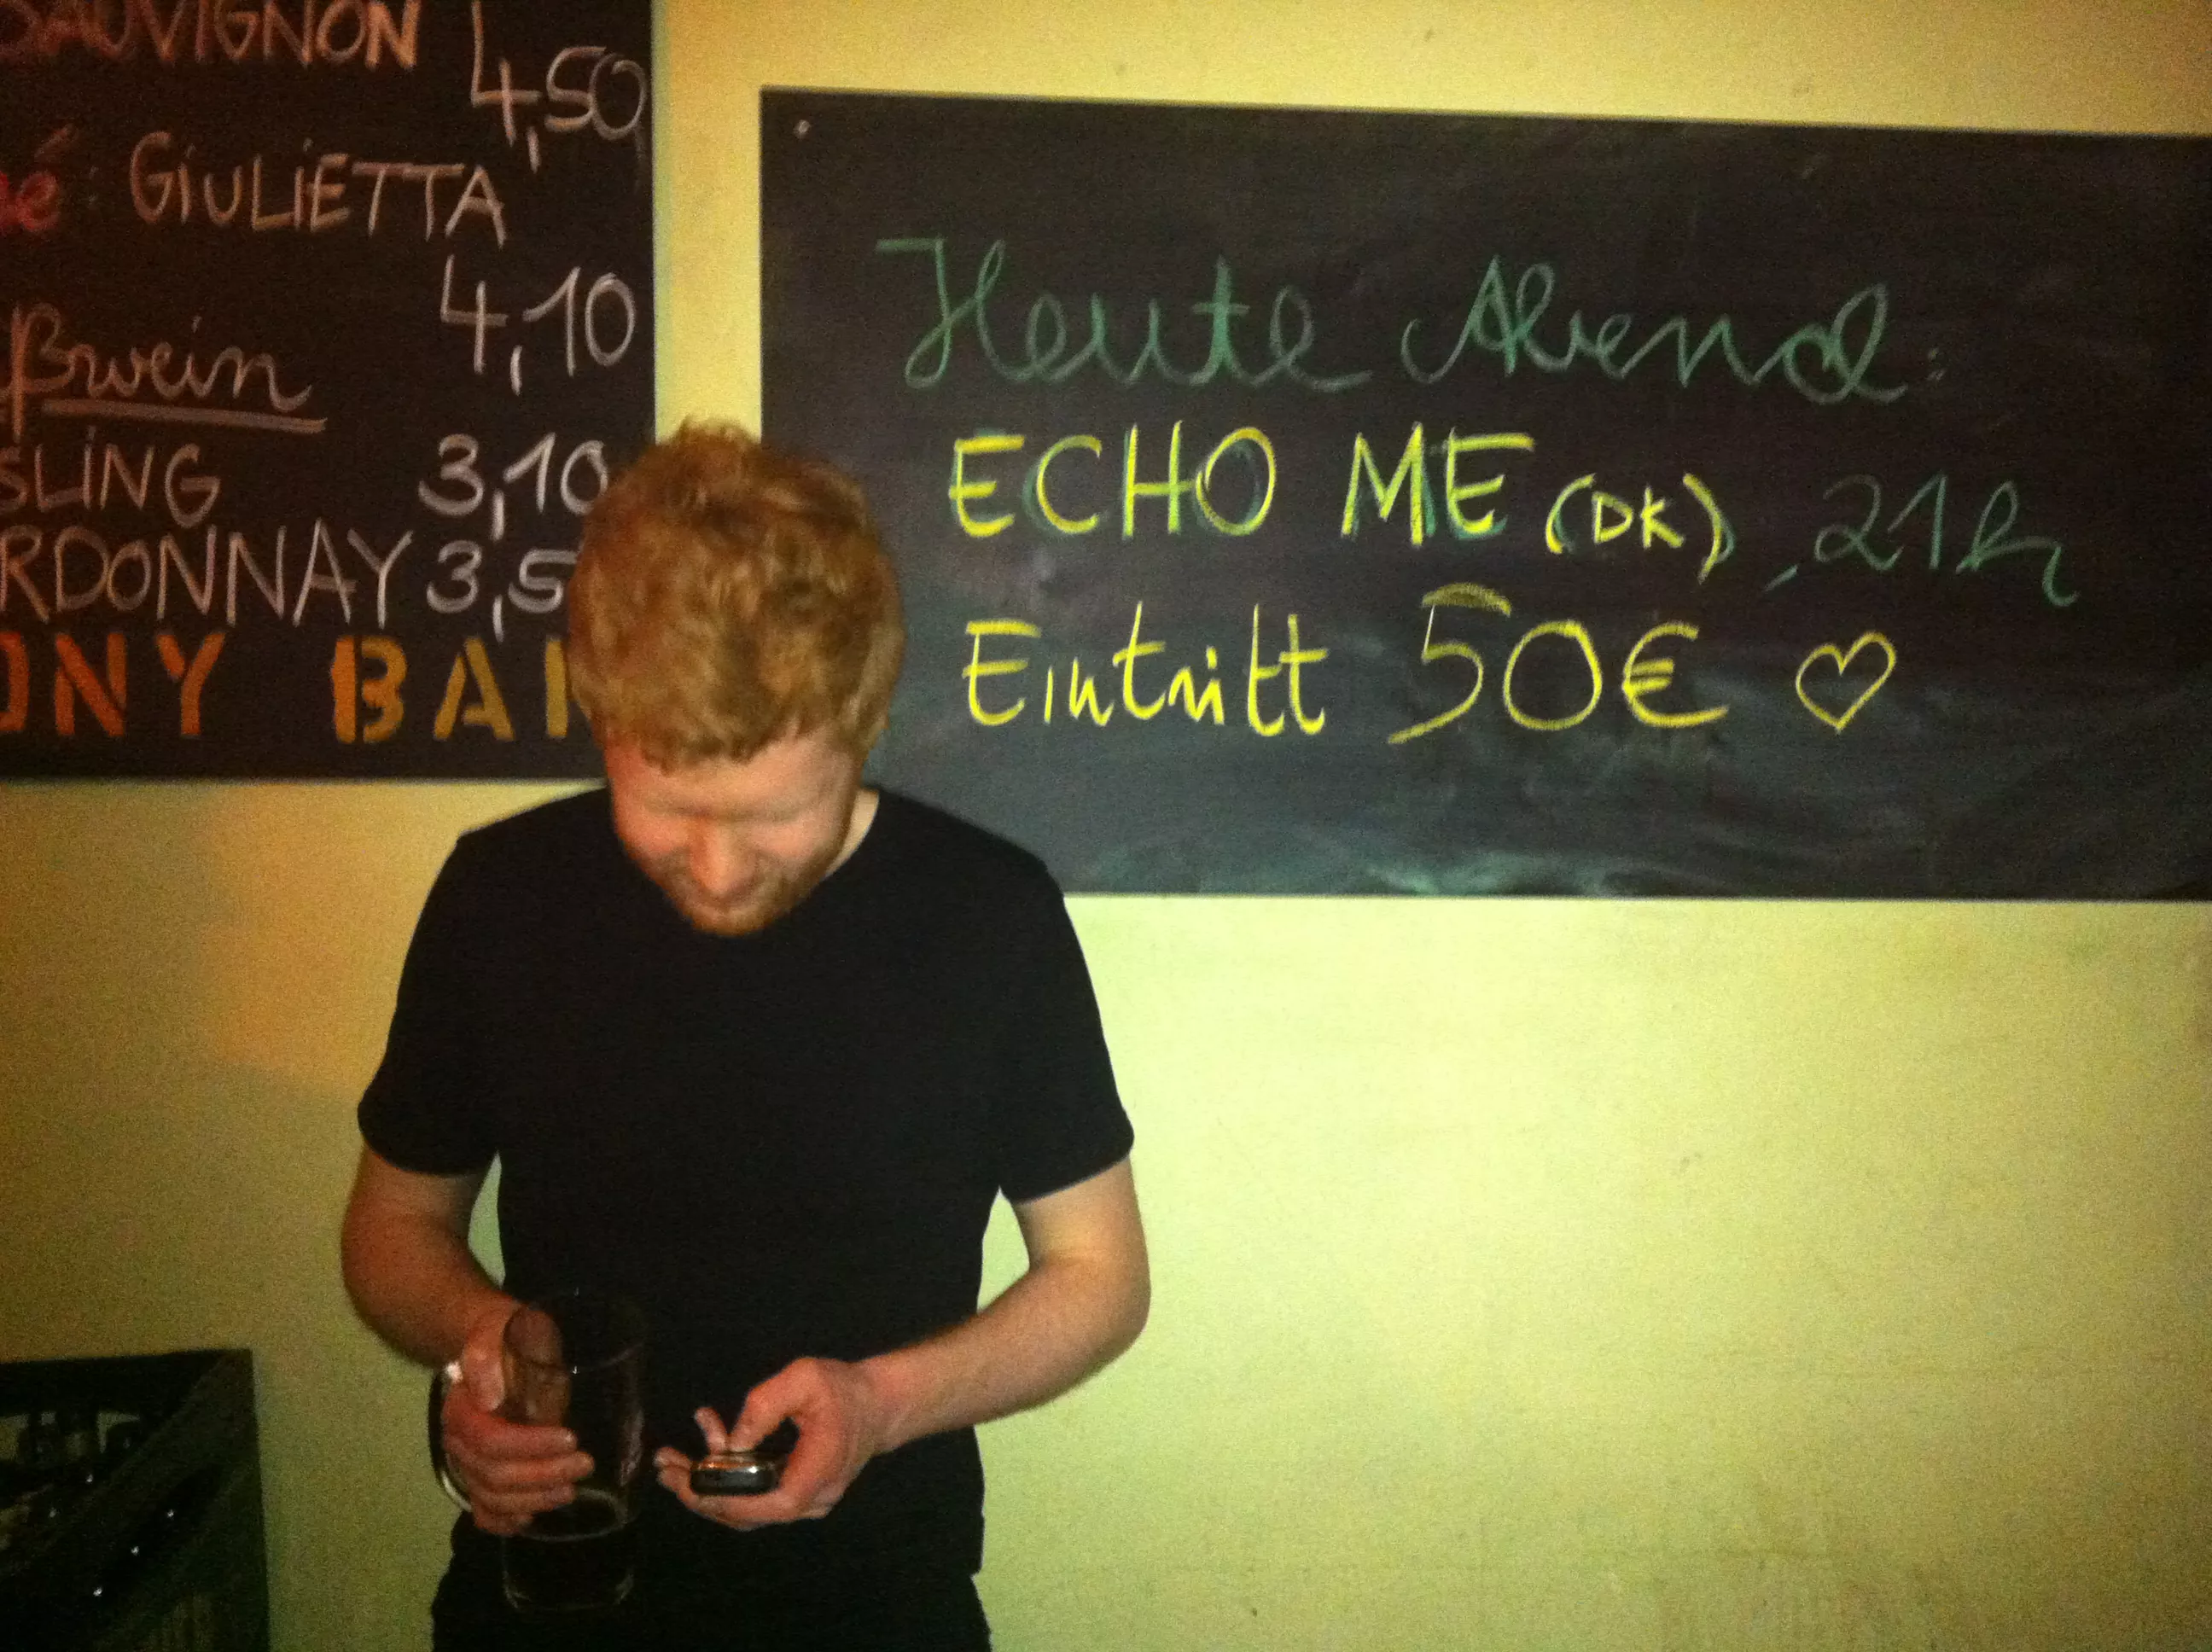 SAUVIGNON 4,50
é: GIULIETTA
4,10
ßwein
SLING 3,10
RDONNAY 3,5
ONY BA
Heute Abend:
ECHO ME (DK), 21h
Eintritt 50€ ♡